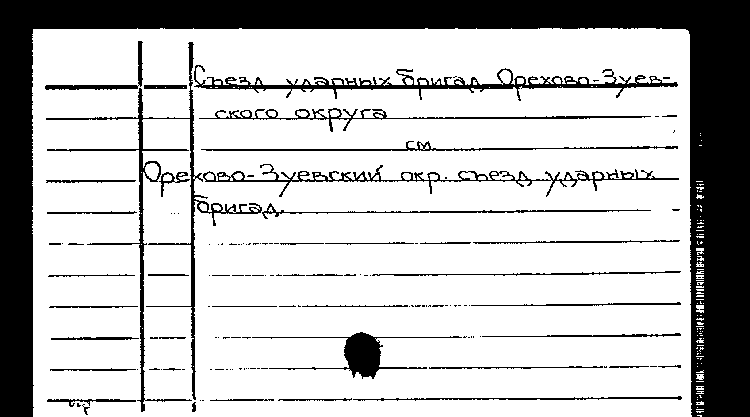 Съезд ударных бригад Орехово-Зуев-
ского округа
см.
Орехово-Зуевский окр. съезд ударных
бригад.